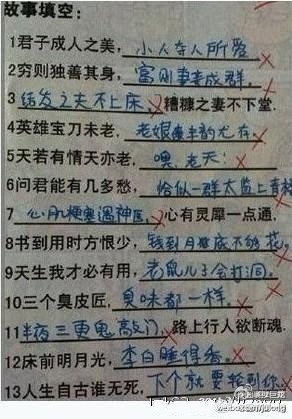 故事填空：
1君子成人之美，小人夺人所爱
2穷则独善其身，富则妻妾成群。
3 结发之夫不上床，糟糠之妻不下堂.
4英雄宝刀未老，老娘 韵尤存
5天若有情天亦老，嘿.老天:
6问君能有几多愁，恰似一群太监上青楼
7 心肌梗塞遇神医，心有灵犀一点通.
8书到用时方恨少，钱到月底不够花。
9天生我才必有用，老鼠儿子会打洞.
10三个臭皮匠，臭味都一样。
11半夜三更鬼敲门，路上行人欲断魂.
12床前明月光，李白睡得
13人生自古谁无死，下个就要轮到你
weibo.com/julong